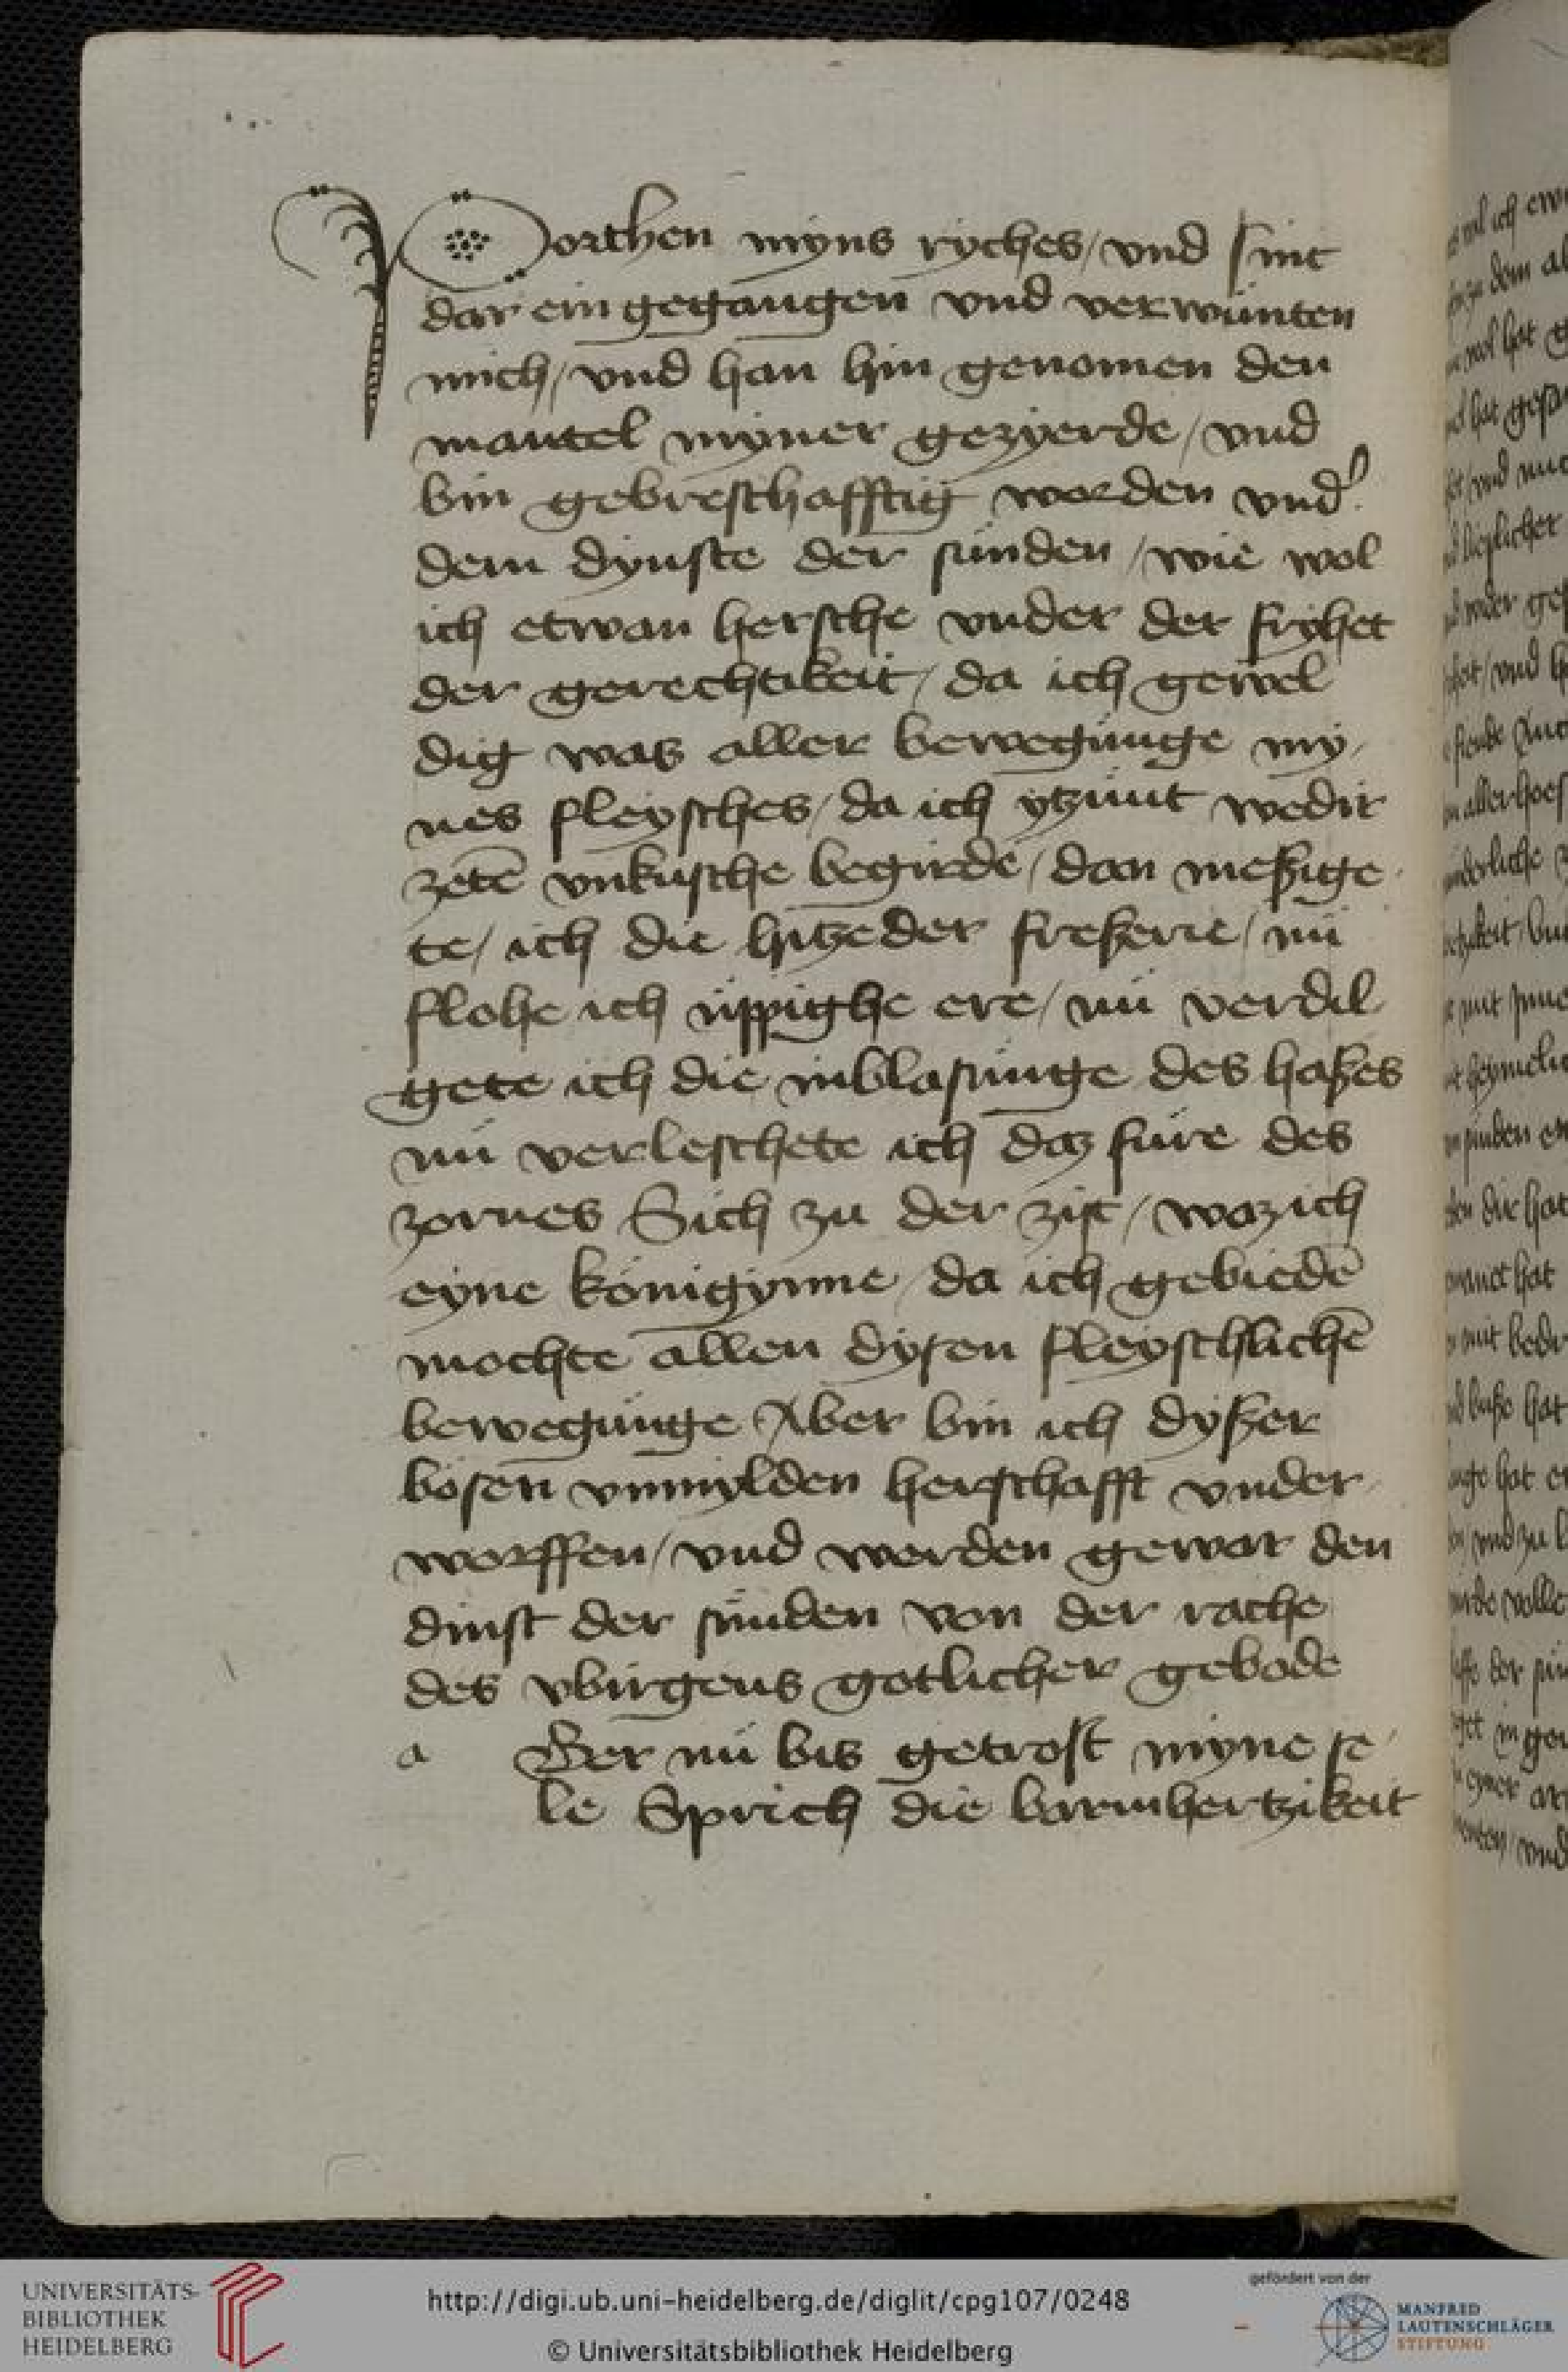 Porthen myns ryches / vnd sint
dar ein gegangen vnd verwünten
mich / vnd han hin genomen den
mantel myner gezyerde / vnd
bin gebresthafftig worden vnd'
dem dynste der sünden / wie wol
ich etwan hersche vnder der fryhet
der gerechtikeit / da ich gewel
dig was aller bewegünge my
nes fleysches / da ich ytzünt wedir
zetē vnküsche begirde / dan meßige
te / ich die hitze der freßerie / nü
flohe ich üppighe ere / nü verdil
gete ich die inblasünge des haßes
nü verleschete ich daz füre des
zornes Sich zu der zijt / waz ich
eyne königynne / da ich gebiedē
mochte allen dysen fleyschlichē
bewegünge Aber bin ich dyßer
bösen vnmylden herschafft vnder
worffen / vnd werden gewar den
dinst der sünden von der rache
des vbirgens gotlicher gebode
a Ber nü bis getrost myne se
le Sprich die barmhertzikeit
UNIVERSITÄTS-
BIBLIOTHEK
HEIDELBERG
http://digi.ub.uni-heidelberg.de/diglit/cpg107/0248
© Universitätsbibliothek Heidelberg
gefördert von der
MANFRED
LAUTENSCHLÄGER
STIFTUNG